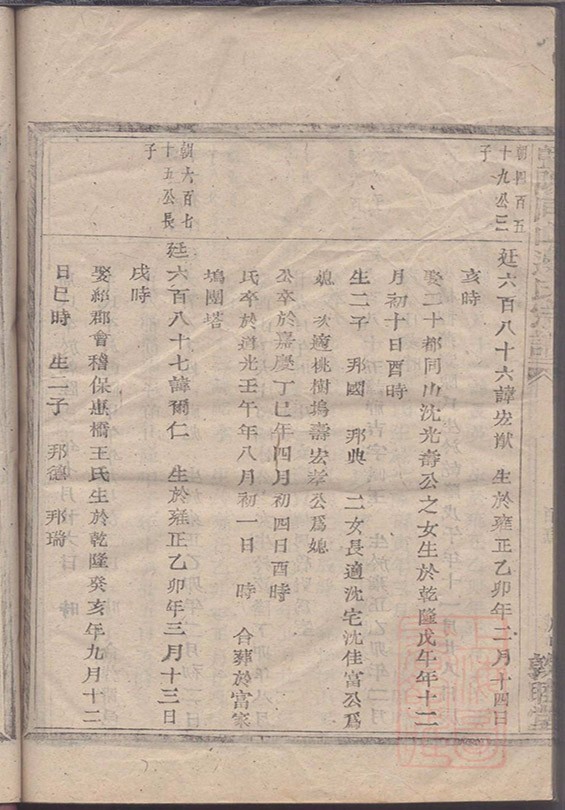 朝四百五
十九公三
子
廷六百八十六諱宏猷 生於雍正乙卯年二月十四日
亥時
娶二十都同山沈光壽公之女生於乾隆戊午年十二
月初十日酉時
生二子 邦國 邦典 二女長適沈宅沈佳富公爲
媳 次適桃樹塢壽宏孝公爲媳
公卒於嘉慶丁巳年四月初四日酉時
氏卒於道光壬午年八月初一日 時 合葬於富家
塢團塔
朝六百七
十五公長
子
廷六百八十七諱爾仁 生於雍正乙卯年三月十三日
戌時
娶紹郡會稽保惠橋王氏生於乾隆癸亥年九月十二
日巳時 生二子 邦德 邦瑞
敦睦堂